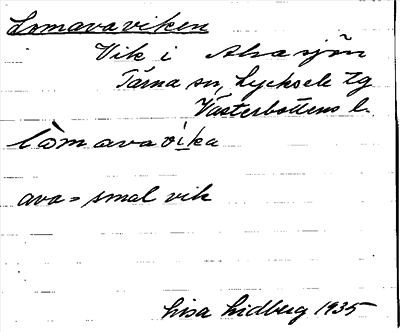 Lomavaviken
Vik i Ahasjön
Tärna sn, Lycksele tg
Västerbottens l.
lòmavavika
ava = smal vik
Lisa Lidberg 1935